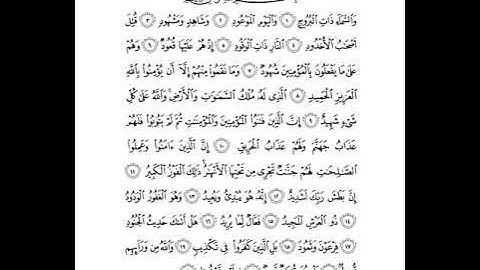 وَٱلسَّمَآءِ ذَاتِ ٱلْبُرُوجِ ١ وَٱلْيَوْمِ ٱلْمَوْعُودِ ٢ وَشَاهِدٍ وَمَشْهُودٍ ٣ قُتِلَ
أَصْحَٰبُ ٱلْأُخْدُودِ ٤ ٱلنَّارِ ذَاتِ ٱلْوَقُودِ ٥ إِذْ هُمْ عَلَيْهَا قُعُودٌ ٦ وَهُمْ
عَلَىٰ مَا يَفْعَلُونَ بِٱلْمُؤْمِنِينَ شُهُودٌ ٧ وَمَا نَقَمُوا۟ مِنْهُمْ إِلَّآ أَن يُؤْمِنُوا۟ بِٱللَّهِ
ٱلْعَزِيزِ ٱلْحَمِيدِ ٨ ٱلَّذِى لَهُۥ مُلْكُ ٱلسَّمَٰوَٰتِ وَٱلْأَرْضِ ۚ وَٱللَّهُ عَلَىٰ كُلِّ
شَىْءٍ شَهِيدٌ ٩ إِنَّ ٱلَّذِينَ فَتَنُوا۟ ٱلْمُؤْمِنِينَ وَٱلْمُؤْمِنَٰتِ ثُمَّ لَمْ يَتُوبُوا۟ فَلَهُمْ
عَذَابُ جَهَنَّمَ وَلَهُمْ عَذَابُ ٱلْحَرِيقِ ١٠ إِنَّ ٱلَّذِينَ ءَامَنُوا۟ وَعَمِلُوا۟
ٱلصَّٰلِحَٰتِ لَهُمْ جَنَّٰتٌ تَجْرِى مِن تَحْتِهَا ٱلْأَنْهَٰرُ ۚ ذَٰلِكَ ٱلْفَوْزُ ٱلْكَبِيرُ ١١
إِنَّ بَطْشَ رَبِّكَ لَشَدِيدٌ ١٢ إِنَّهُۥ هُوَ يُبْدِئُ وَيُعِيدُ ١٣ وَهُوَ ٱلْغَفُورُ ٱلْوَدُودُ
١٤ ذُو ٱلْعَرْشِ ٱلْمَجِيدُ ١٥ فَعَّالٌ لِّمَا يُرِيدُ ١٦ هَلْ أَتَىٰكَ حَدِيثُ ٱلْجُنُودِ
١٧ فِرْعَوْنَ وَثَمُودَ ١٨ بَلِ ٱلَّذِينَ كَفَرُوا۟ فِى تَكْذِيبٍ ١٩ وَٱللَّهُ مِن وَرَآئِهِم